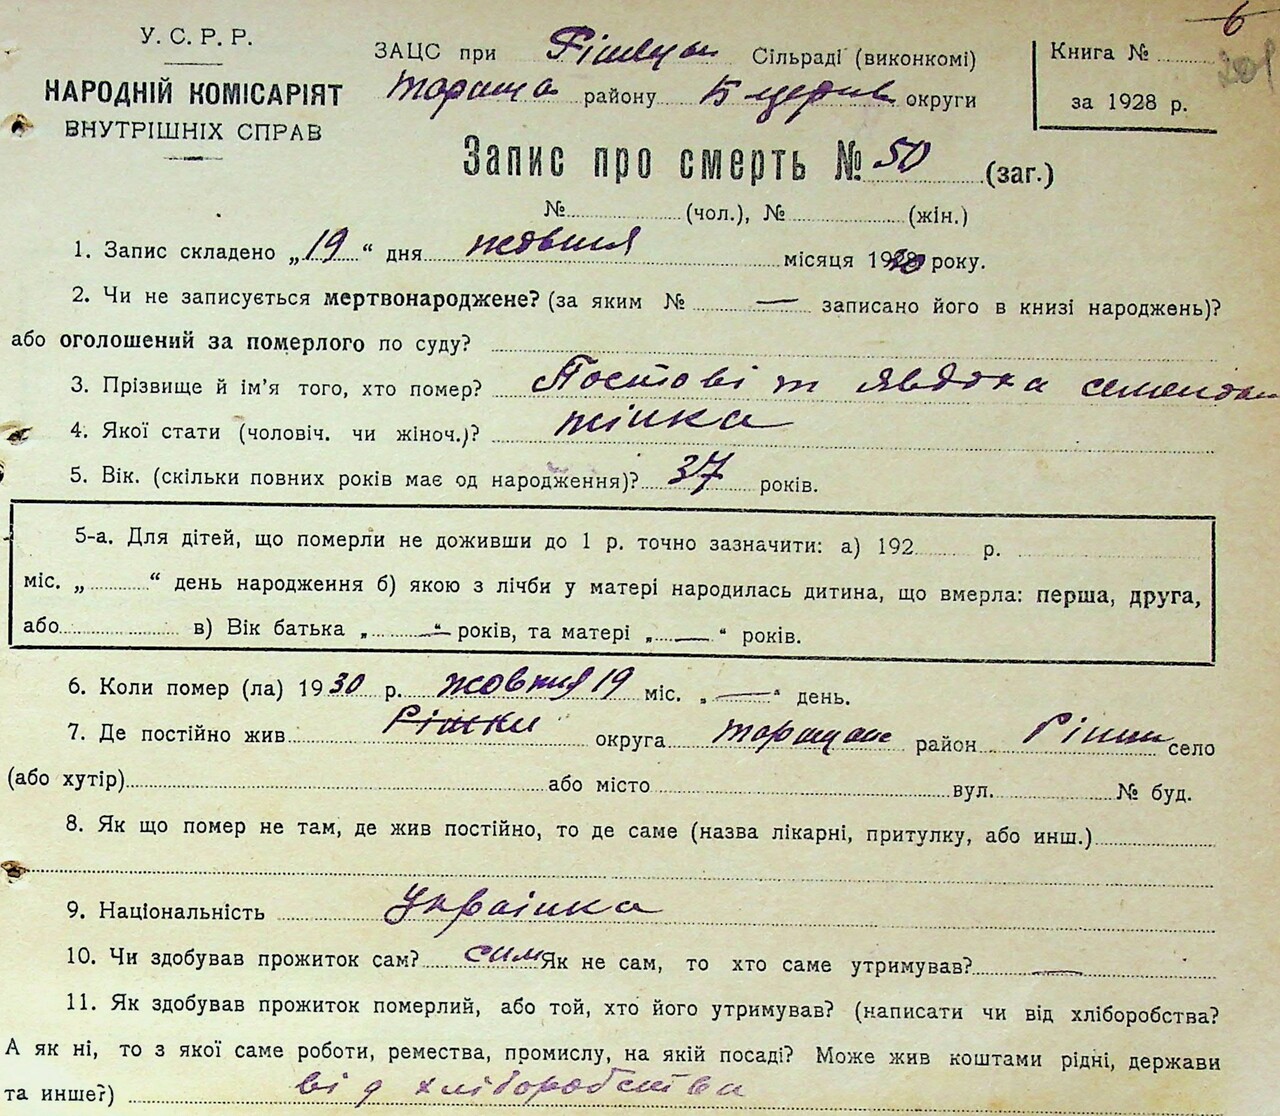 6
201
У. С. Р. Р.
НАРОДНІЙ КОМІСАРІЯТ
ВНУТРІШНІХ СПРАВ
ЗАЦС при Сільраді (виконкомі)
Тараща району Б церків округи
Книга №
за 1928 р.
Запис про смерть № 50 (заг.)
№ (чол.), № (жін.)
1. Запис складено „19“ дня жовтня місяця 1930 року.
2. Чи не записується мертвонароджене? (за яким № — записано його в книзі народжень)?
або оголошений за померлого по суду?
3. Прізвище й ім’я того, хто помер? Явдоха
4. Якої стати (чоловіч. чи жіноч.)? жінка
5. Вік. (скільки повних років має од народження)? 37 років.
5-а. Для дітей, що померли не доживши до 1 р. точно зазначити: а) 192 р.
міс. „ “ день народження б) якою з лічби у матері народилась дитина, що вмерла: перша, друга,
або в) Вік батька „ — “ років, та матері „ — “ років.
6. Коли помер (ла) 1930 р. жовтня 19 міс. „ — “ день.
7. Де постійно жив Ріжки округа Таращан район село
(або хутір) або місто вул. № буд.
8. Як що помер не там, де жив постійно, то де саме (назва лікарні, притулку, або инш.)
9. Національність Українка
10. Чи здобував прожиток сам? сам Як не сам, то хто саме утримував? —
11. Як здобував прожиток померлий, або той, хто його утримував? (написати чи від хліборобства?
А як ні, то з якої саме роботи, ремества, промислу, на якій посаді? Може жив коштами рідні, держави
та инше?) від хліборобства